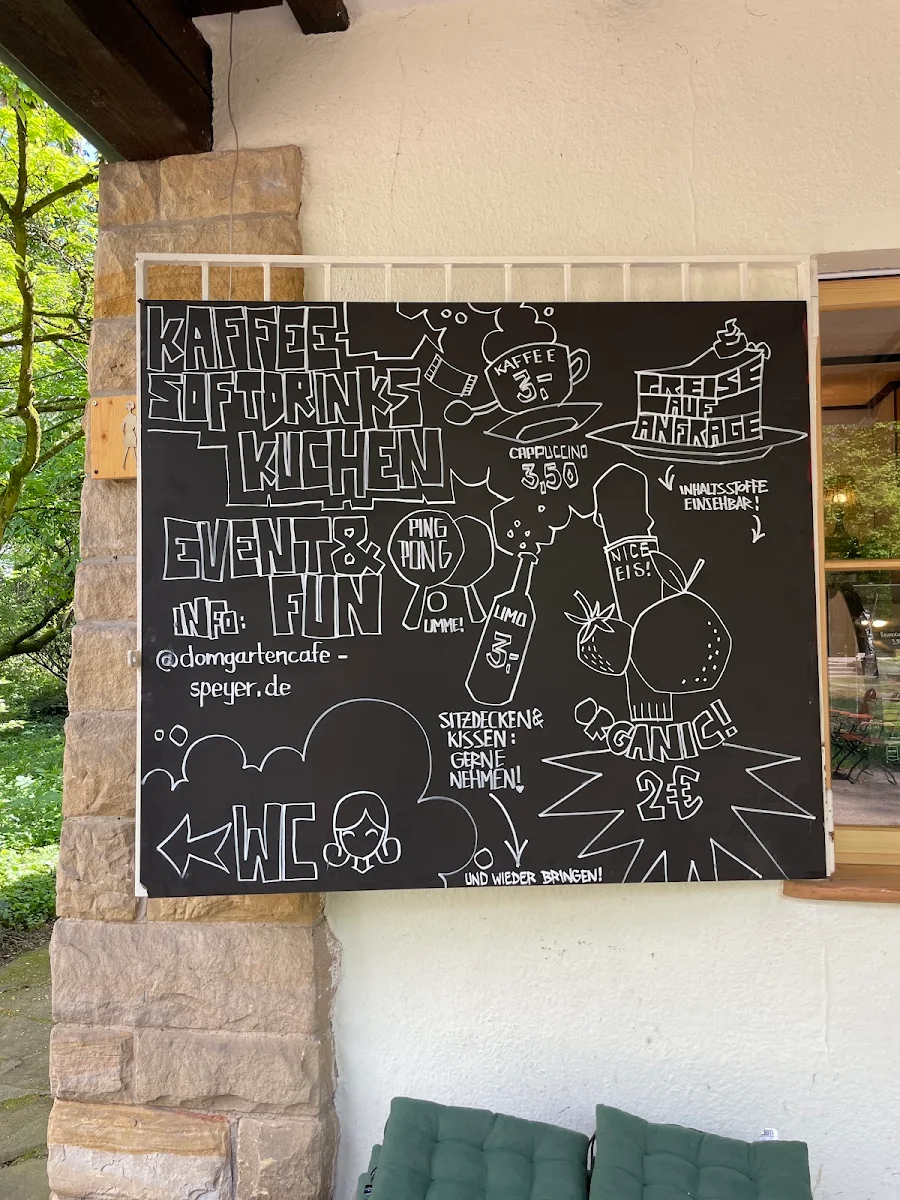 KAFFEE
SOFTDRINKS
KUCHEN
EVENT&
FUN
INFO:
@domgartencafe-
speyer.de
WC
KAFFEE
3,-
CAPPUCCINO
3,50
PING
PONG
UMME!
LIMO
3,-
SITZDECKEN&
KISSEN:
GERNE
NEHMEN!
UND WIEDER BRINGEN!
PREISE
AUF
ANFRAGE
INHALTSSTOFFE
EINSEHBAR!
NICE
EIS!
ORGANIC!
2€